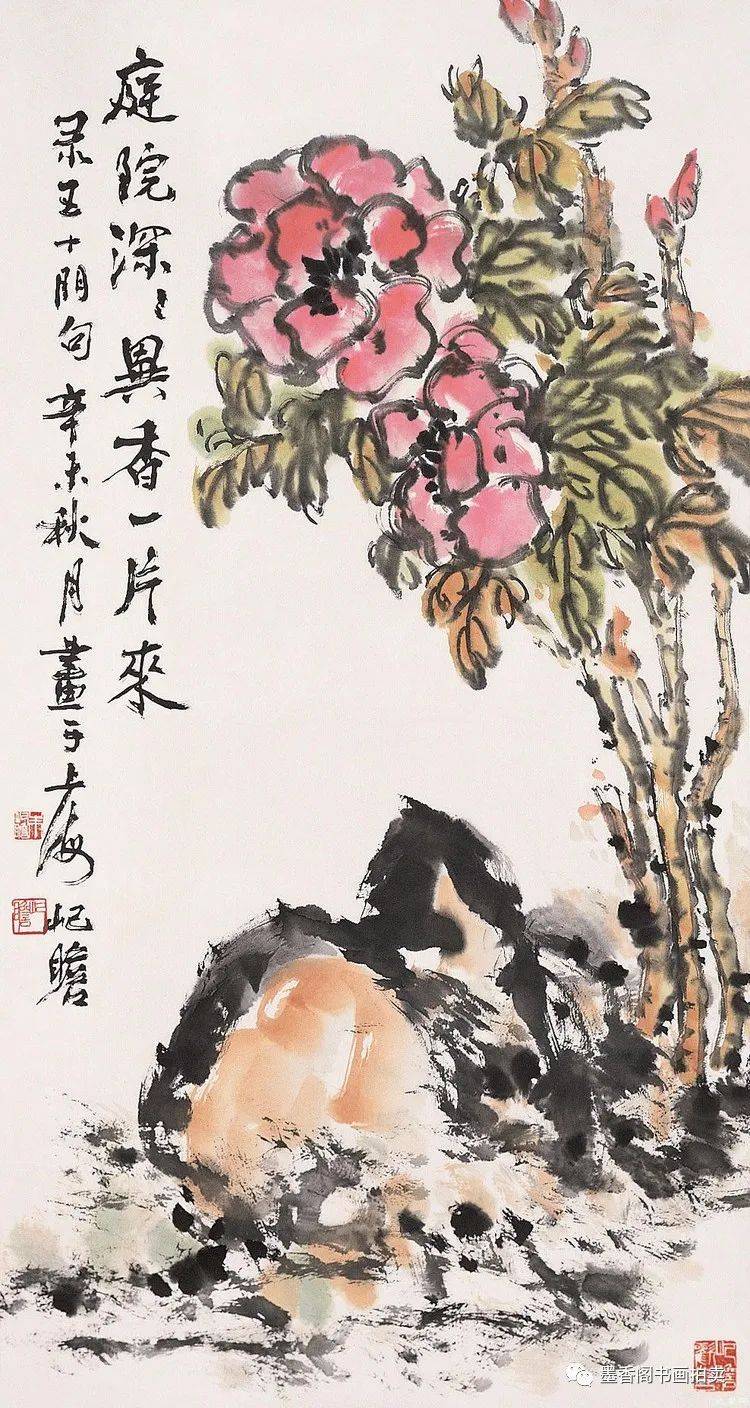 庭院深〻異香一片來
录王十朋句 辛未秋月畫于上海
屺瞻
墨香阁书画拍卖